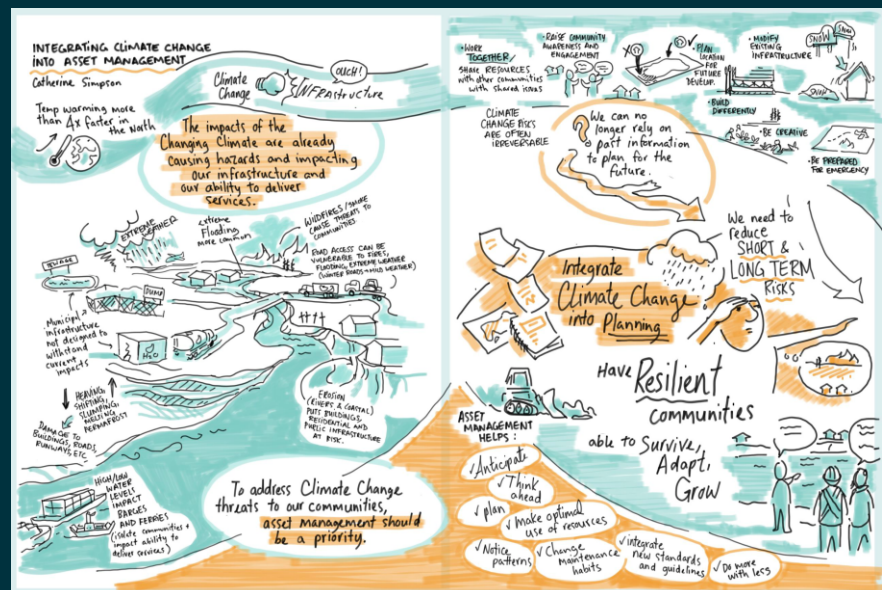 INTEGRATING CLIMATE CHANGE
INTO ASSET MANAGEMENT
Catherine Simpson
Temp warming more
than 4x faster in
the North
Climate
Change
OUCH!
INFRASTRUCTURE
The impacts of the
Changing Climate are already
causing hazards and impacting
our infrastructure and
our ability to deliver
services.
EXTREME
WEATHER
extreme
Flooding
more common
WILDFIRES/SMOKE
CAUSE THREATS TO
COMMUNITIES
ROAD ACCESS CAN BE
VULNERABLE TO FIRES,
FLOODING, EXTREME WEATHER
(WINTER ROADS → MILD WEATHER)
DUMP
Municipal
infrastructure
not designed to
withstand
current
impacts
H2O
HEAVING,
SHIFTING,
SLUMPING,
MELTING
PERMAFROST
DAMAGE TO
BUILDINGS, ROADS,
RUNWAYS, ETC
EROSION
(RIVERS & COASTAL)
PUTS BUILDINGS,
RESIDENTIAL AND
PUBLIC INFRASTRUCTURE
AT RISK.
HIGH/LOW
WATER
LEVELS
IMPACT
BARGES
AND FERRIES
(isolate communities +
impact ability to
deliver services)
To address Climate Change
threats to our communities,
asset management should
be a priority.
• WORK
TOGETHER/
SHARE RESOURCES
with other communities
with shared issues
• RAISE COMMUNITY
AWARENESS AND
ENGAGEMENT
• PLAN
LOCATION
FOR
FUTURE
DEVELOP.
• MODIFY
EXISTING
INFRASTRUCTURE
SNOW
SNOW
• BUILD
DIFFERENTLY
• BE CREATIVE
• BE PREPARED
FOR EMERGENCY
CLIMATE
CHANGE RISKS
ARE OFTEN
IRREVERSABLE
We can no
longer rely on
past information
to plan for the
future.
We need to
reduce
SHORT &
LONG TERM
RISKS
Integrate
Climate Change
into Planning
HAVE Resilient
communities
able to Survive,
Adapt,
Grow
ASSET
MANAGEMENT
HELPS:
✓ Anticipate
✓ Think
ahead
✓ plan
✓ Make optimal
use of resources
✓ Notice
patterns
✓ Change
maintenance
habits
✓ integrate
new standards
and guidelines
✓ Do more
with less